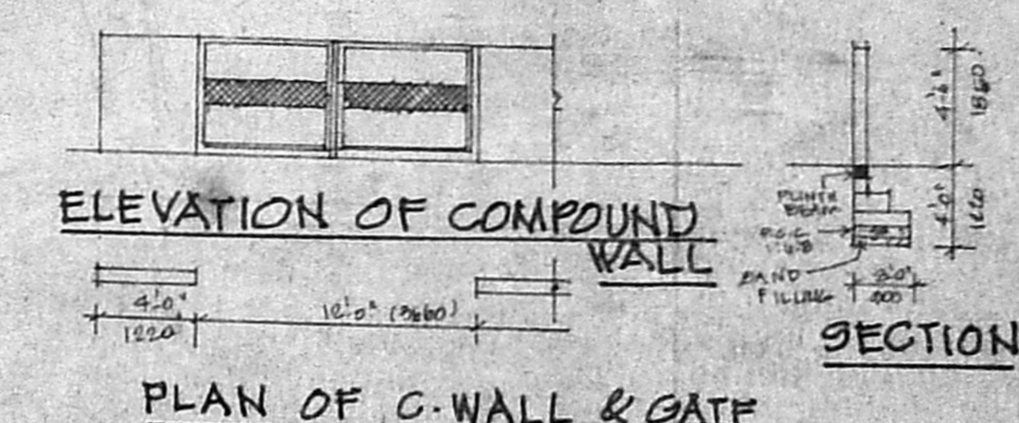 ELEVATION OF COMPOUND
WALL
4'-0"
1220
12'-0" (3660)
PLAN OF C. WALL & GATE
4'-6"
4'-0"
PLINTH
BEAM
P.C.C
1:4:8
SAND
FILLING
3'-0"
900
SECTION